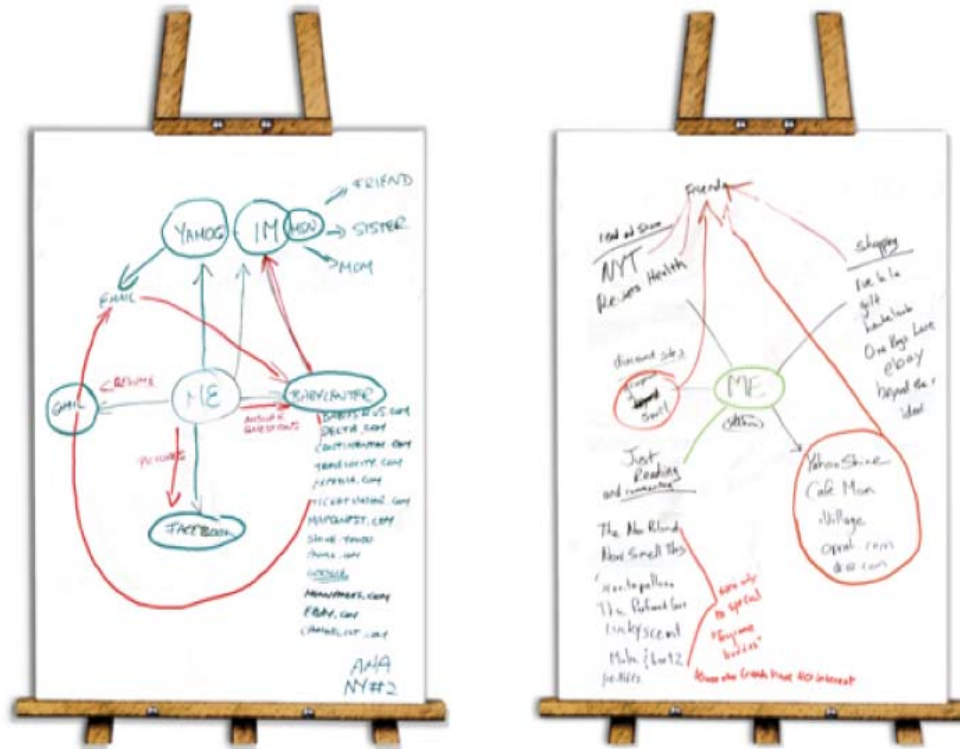 FRIEND
YAHOO IM MSN SISTER
MOM
EMAIL
RESUME
GMAIL ME BABYCENTER
ANSWER
QUESTIONS
BABYSRUS.COM
DELTA.COM
CONTINENTAL.COM
TRAVELOCITY.COM
EXPEDIA.COM
TICKETMASTER.COM
MAPQUEST.COM
SHINE YAHOO
GOOGLE
EBAY.COM
CRAIGSLIST.COM
PICTURES
FACEBOOK
ANA
NY#2
Friends
read and share
NYT
Reuters Health
Shopping
Rue la la
gilt
hautelook
One Kings Lane
ebay
beyond the
discount sites
ME
Just
Reading
and commenting
Yahoo Shine
Cafe Mom
iVillage
oprah.com
The Non Blonde
Now Smell This
The Perfumed Court
luckyscent
politics
send only
to special
"fragrance
buddies"
friends have NO interest